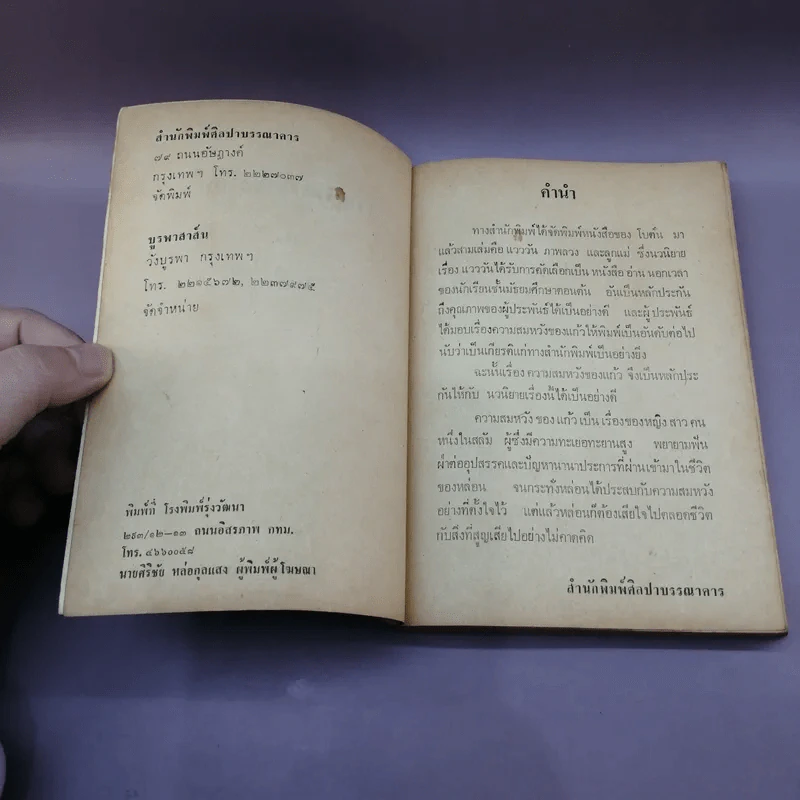 สำนักพิมพ์ศิลปาบรรณาคาร
๗๙ ถนนอัษฎางค์
กรุงเทพฯ โทร. ๒๒๒๗๐๓๗
จัดพิมพ์
บูรพาสาส์น
วังบูรพา กรุงเทพฯ
โทร. ๒๒๑๕๖๗๒, ๒๒๓๗๙๗๕
จัดจำหน่าย
พิมพ์ที่ โรงพิมพ์รุ่งวัฒนา
๒๘๓/๑๒–๑๓ ถนนอิสรภาพ กทม.
โทร. ๔๖๖๐๐๕๘
นายศิริชัย หล่อกุลแสง ผู้พิมพ์ผู้โฆษณา
คำนำ
ทางสำนักพิมพ์ได้จัดพิมพ์หนังสือของ โบตั๋น มา
แล้วสามเล่มคือ แวววัน ภาพลวง และลูกแม่ ซึ่งนวนิยาย
เรื่อง แวววันได้รับการคัดเลือกเป็น หนังสือ อ่าน นอกเวลา
ของนักเรียนชั้นมัธยมศึกษาตอนต้น อันเป็นหลักประกัน
ถึงคุณภาพของผู้ประพันธ์ได้เป็นอย่างดี และผู้ประพันธ์
ได้มอบเรื่องความสมหวังของแก้วให้พิมพ์เป็นอันดับต่อไป
นับว่าเป็นเกียรติแก่ทางสำนักพิมพ์เป็นอย่างยิ่ง
ฉะนั้นเรื่อง ความสมหวังของแก้ว จึงเป็นหลักประ
กันให้กับ นวนิยายเรื่องนี้ได้เป็นอย่างดี
ความสมหวัง ของ แก้ว เป็น เรื่องของหญิง สาว คน
หนึ่งในสลัม ผู้ซึ่งมีความทะเยอทะยานสูง พยายามฟัน
ฝ่าต่ออุปสรรคและปัญหานานาประการที่ผ่านเข้ามาในชีวิต
ของหล่อน จนกระทั่งหล่อนได้ประสบกับความสมหวัง
อย่างที่ตั้งใจไว้ แต่แล้วหล่อนก็ต้องเสียใจไปตลอดชีวิต
กับสิ่งที่สูญเสียไปอย่างไม่คาดคิด
สำนักพิมพ์ศิลปาบรรณาคาร